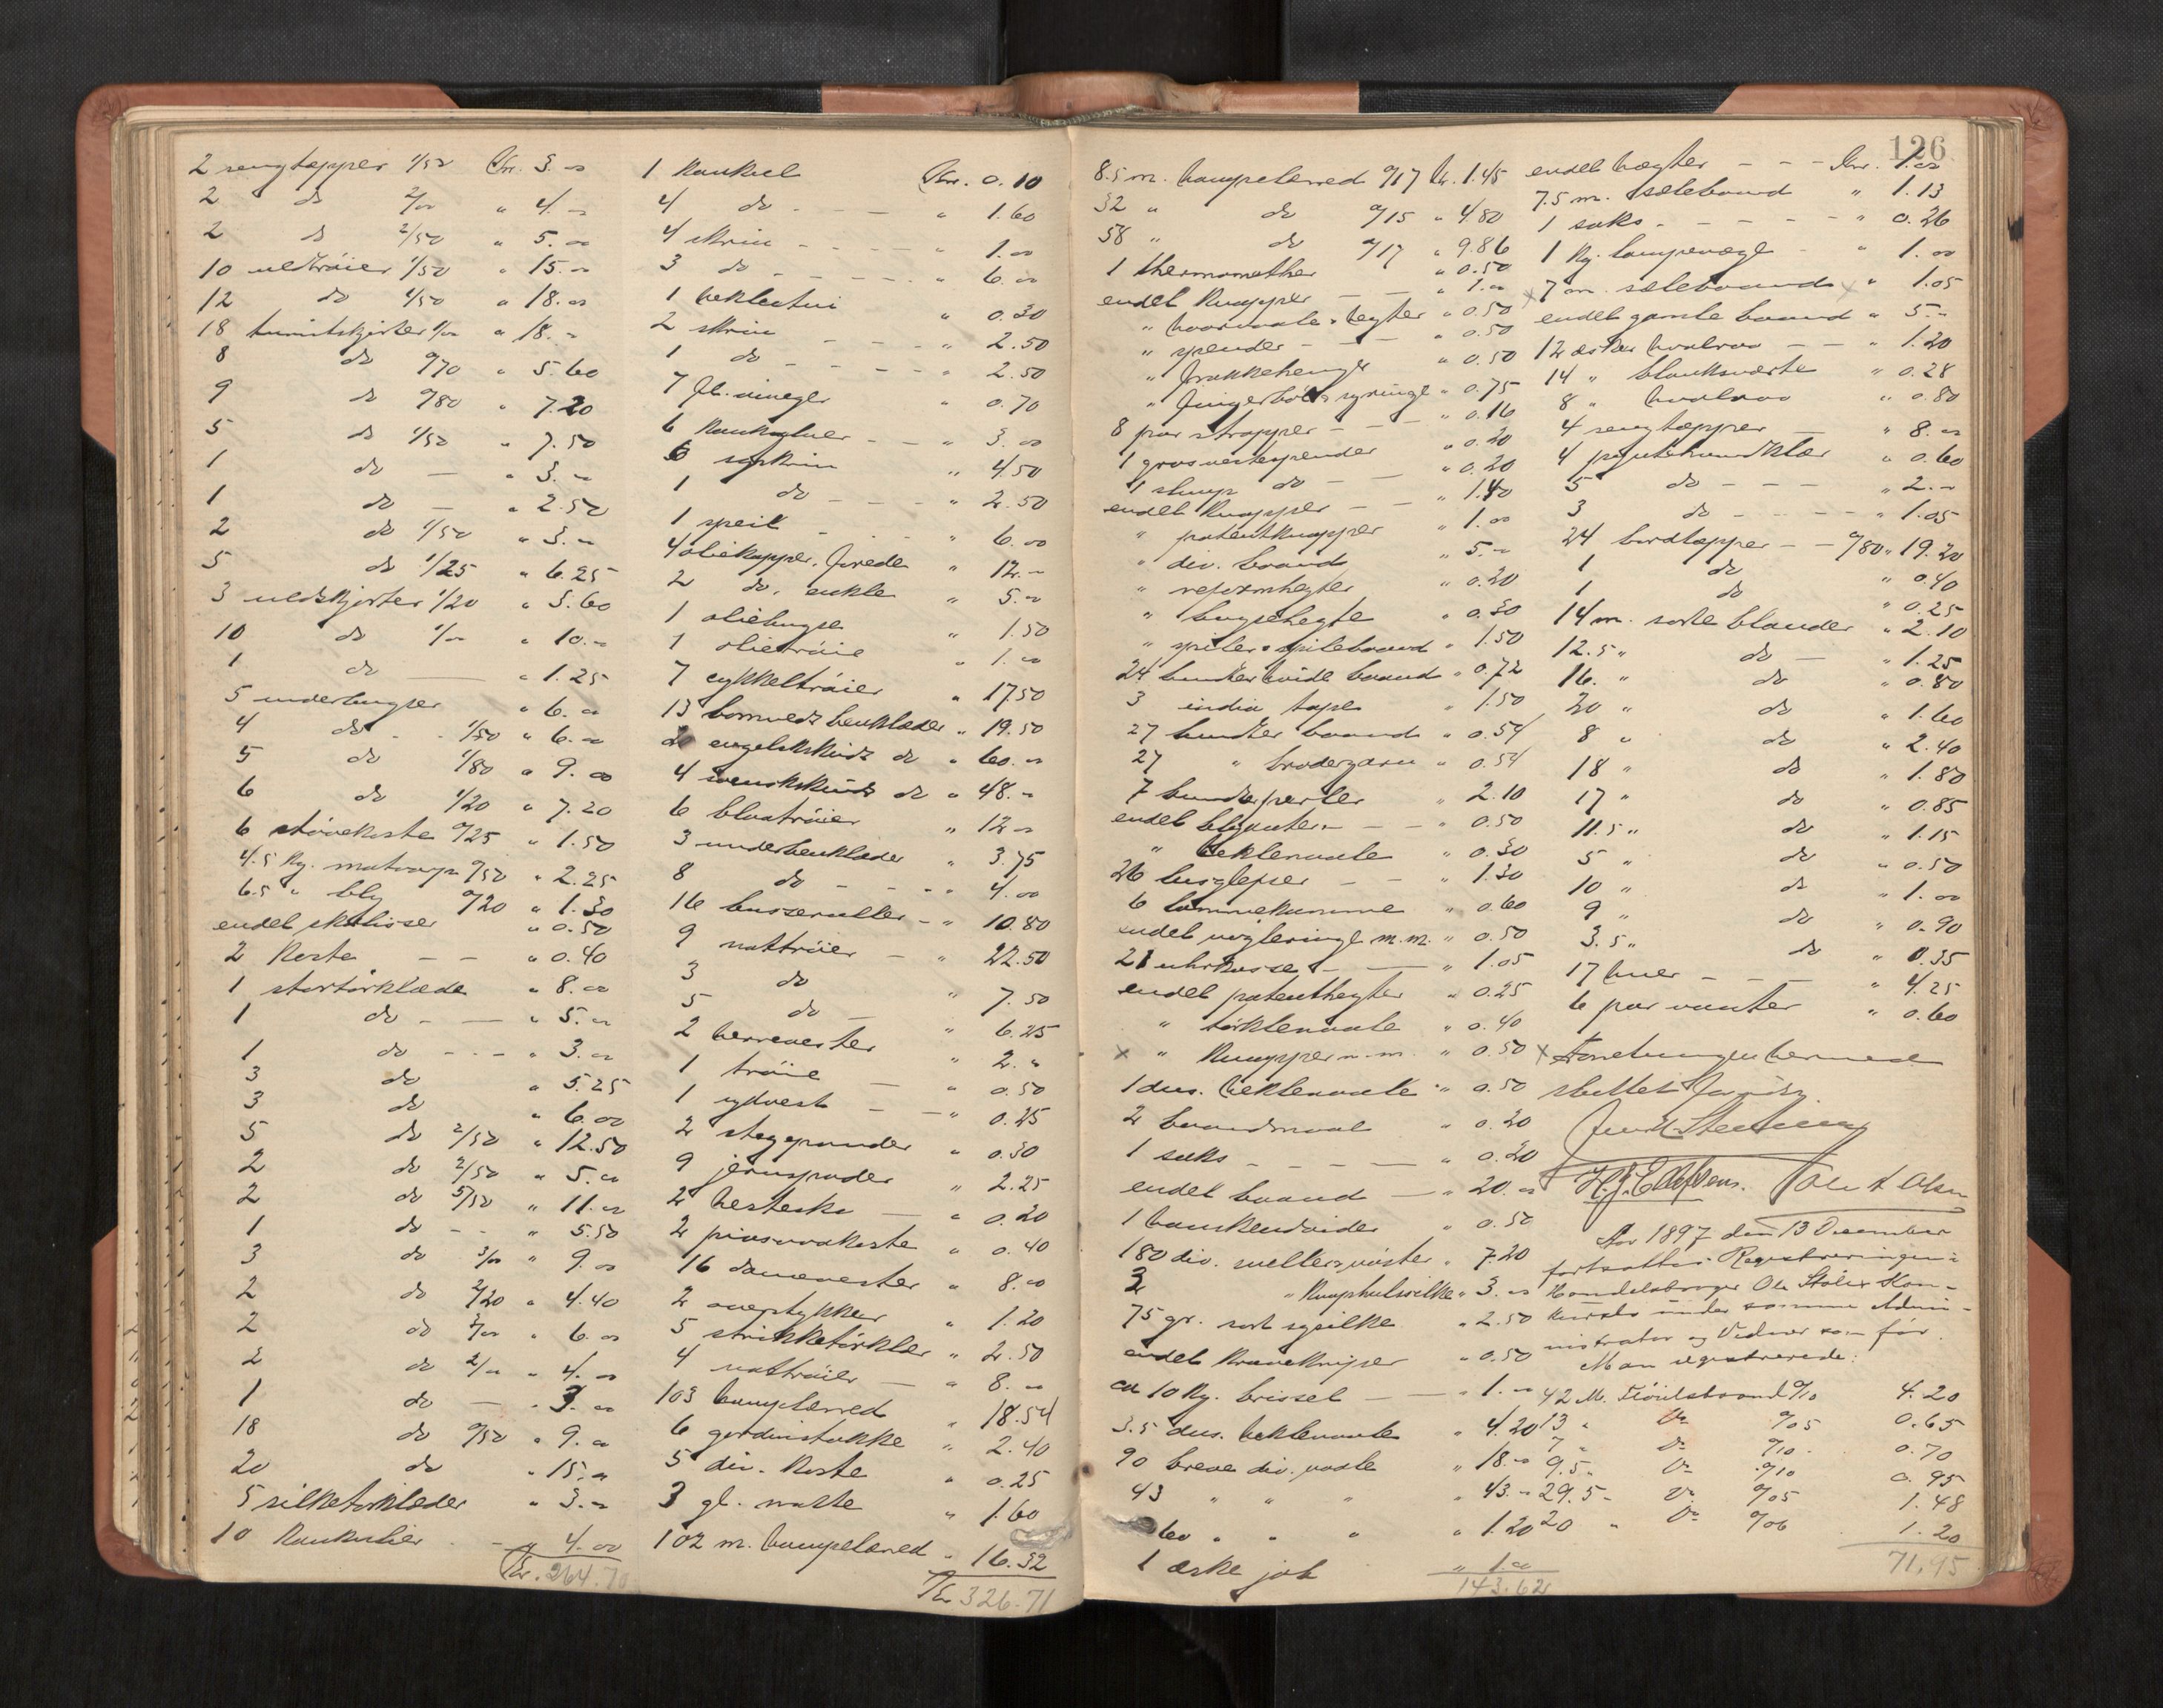 2 sengtæpper 1/50 Kr. 3.00
2 do 2/00 " 4.00
2 do 2/50 " 5.00
10 uldtrøier 1/50 " 15.00
12 do 1/50 " 18.00
18 skjorter 1/00 " 18.00
8 do 0/70 " 5.60
9 do 0/80 " 7.20
5 do 1/50 " 7.50
1 do — " 3.00
1 do — " 2.50
2 do 1/50 " 3.00
5 do 1/25 " 6.25
3 uldskjorter 1/20 " 3.60
10 do 1/00 " 10.00
1 do — " 1.25
5 underbugser " 6.00
4 do - 1/50 " 6.00
5 do 1/80 " 9.00
6 do 1/20 " 7.20
6 støvekoste 0/25 " 1.50
4.5 kg. 0/50 " 2.25
6.5 " bly 0/20 " 1.30
endel skolisser " 0.50
2 koste — " 0.40
1 stortørklæde " 8.00
1 do - — " 5.00
1 do - - - " 3.00
3 do " 5.25
3 do " 6.00
5 do 2/50 " 12.50
2 do 2/50 " 5.00
2 do 5/50 " 11.00
1 do - - " 5.50
3 do 3/00 " 9.00
2 do 2/20 " 4.40
2 do 3/00 " 6.00
2 do 2/00 " 4.00
1 do — " 3.00
18 do 0/50 " 9.00
20 do " 15.00
5 silketørklæder " 3.00
10 - " 4.00
Kr. 264.70
1 Kr. 0.10
4 do - — " 1.60
4 skrin - - - - " 1.00
3 do - - - - " 6.00
1 hekleetui " 0.30
2 skrin - - - - " 2.50
1 do - - - - " 2.50
7 fl. vineger " 0.70
6 - - " 3.00
6 syskrin " 4.50
1 do - - - " 2.50
1 speil - - " 6.00
4 oliekapper, forede " 12.00
2 do, enkle " 5.00
1 oliebugse " 1.50
1 olietrøie " 1.00
7 cykkeltrøier " 17.50
13 bomulds benklæder " 19.50
20 engelskskinds do " 60.00
4 svenskskinds do " 48.00
6 blaatrøier " 12.00
3 underbenklæder " 3.75
8 do - - - " 4.00
16 busseruller - " 10.80
9 nattrøier — " 22.50
3 do " 7.50
5 do — " 6.25
2 herrevester " 2.00
1 trøie — " 0.50
1 sydvest - — " 0.25
2 stegepander " 0.30
9 jernspader " 2.25
2 hestesko — " 0.20
2 piasavakoste " 0.40
16 damevester " 8.00
2 overstykker " 1.20
5 strikketørklær " 2.50
4 nattrøier — " 8.00
103 hampelærred " 18.54
6 gardinstokke " 2.40
5 div. koste " 0.25
3 gl. " 1.60
102 m. hampelærred " 16.32
Kr. 326.71
126
8.5 m. hampelærred 0/17 Kr. 1.45
32 " do 0/15 " 4.80
58 " do 0/17 " 9.86
1 thermomether " 0.50
endel knapper — — " 1.00
" haarnaale & hegter " 0.50
" spender - — " 0.50
" frakkehenger " 0.50
" fingerbøl & syringe " 0.75
8 par stropper - - - " 0.16
1 gros vestespender " 0.20
1 slump do - — " 0.20
endel knapper - - " 1.40
" patentknapper " 1.00
" div. baand " 5.00
" reformhegter " 0.20
" bugsehegte " 0.30
" spiler & spilebaand " 1.50
24 bundter hvide baand " 0.72
3 india tape " 1.50
27 bundter baand " 0.54
27 " brodergarn " 0.54
7 bundter perler " 2.10
endel blyanter - — - " 0.50
" heklenaale " 0.30
26 — " 1.30
6 lommekamme " 0.60
endel nøgleringe m.m. " 0.50
21 uhrkasse - — " 1.05
endel patenthegter " 0.25
" tørklenaale " 0.40
x " knapper m.m. " 0.50
1 dus. heklenaale " 0.50
2 baandmaal " 0.20
1 saks - - - — " 0.20
endel baand — " 20.00
1 hanskeudvider " 0.50
180 div. " 7.20
3 " knaphulssilke " 3.00
75 gr. sort sysilke " 2.50
endel kraveknipper " 0.50
ca 10 kg. brissel — — " 1.00
3.5 dus. heklenaale " 4.20
90 breve div. naale " 18.00
43 " " " " 43.00
60 " " " " 1.20
1 æske job " 1.00
143.62
endel hegter - - - Kr. 1.00
7.5 m. selebaand " 1.13
1 saks - - - - - " 0.26
1 kg. lampevæge - " 1.00
x 7 m. selebaand x " 1.05
endel gamle baand " 5.00
12 æsker - — " 1.20
14 " blanksværte " 0.28
8 " " 0.80
4 sengtæpper — " 8.00
4 haandklær " 0.60
5 do - - - " 2.00
3 do - - - - " 1.05
24 bordtæpper - - 0/80 " 19.20
1 do " 0.40
1 do " 0.25
14 m. sorte blonder " 2.10
12.5 " do — " 1.25
16. " do " 0.80
20 " do " 1.60
8 " do " 2.40
18 " do " 1.80
17 " do " 0.85
11.5 " do " 1.15
5 " do " 0.50
10 " do " 1.00
9 " do " 0.90
3.5 " do " 0.35
17 huer - - — " 4.25
6 par vanter " 0.60
x Forretningen hermed
sluttet foreløbig.
Ole A Olsen
Aar 1897 den 13 December
fortsattes Registreringen i
Handelsborger Ole Kon-
kursbo under samme Admi-
nistrator og Vidner som før.
Man registrerede:
42 M. Fløielsbaand 0/10 4.20
13 " Do 0/05 0.65
7 " Do 0/10 0.70
9.5 " Do 0/10 0.95
29.5 " Do 0/05 1.48
20 " Do 0/06 1.20
71.95